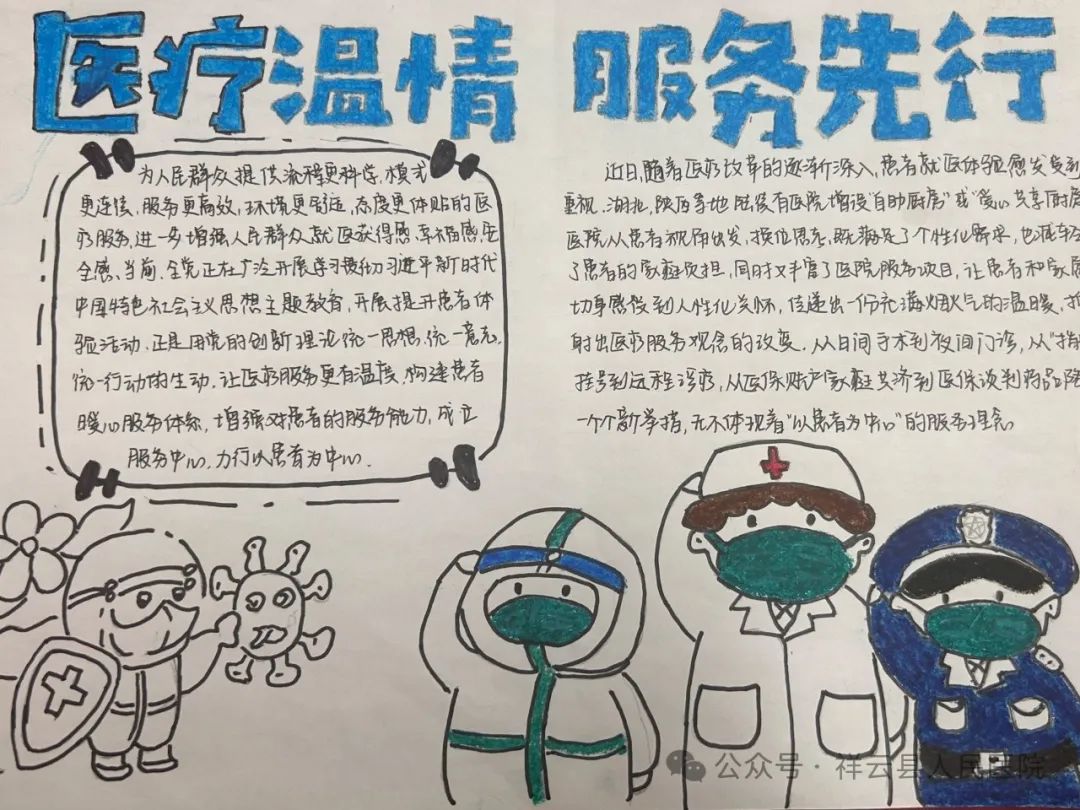 医疗温情 服务先行
为人民群众提供流程更科学、模式
更连续、服务更高效、环境更舒适、态度更体贴的医
疗服务,进一步增强人民群众就医获得感、幸福感、安
全感、当前、全党正在广泛开展学习贯彻习近平新时代
中国特色社会主义思想主题教育,开展提升患者体
验活动、正是用党的创新理论统一思想、统一意志、
统一行动的生动、让医疗服务更有温度、构建患者
暖心服务体系,增强对患者的服务能力,成立
服务中心、力行以患者为中心.
近日,随着医疗改革的逐渐深入,患者就医体验感发受到
重视.湖北,陕西等地陆续有医院增设"自助厨房"或"暖心共享厨房
医院从患者视角出发,换位思考,既满足了个性化需求,也减轻
了患者的家庭负担,同时又丰富了医院服务项目,让患者和家属
切身感受到人性化关怀,传递出一份充满烟火气的温暖,折
射出医疗服务观念的改变.从日间手术到夜间门诊,从"指
挂号到远程诊疗,从医保账户家庭共济到医保谈判药品
一个个新举措,无不体现着"以患者为中心"的服务理念
公众号·祥云县人民医院